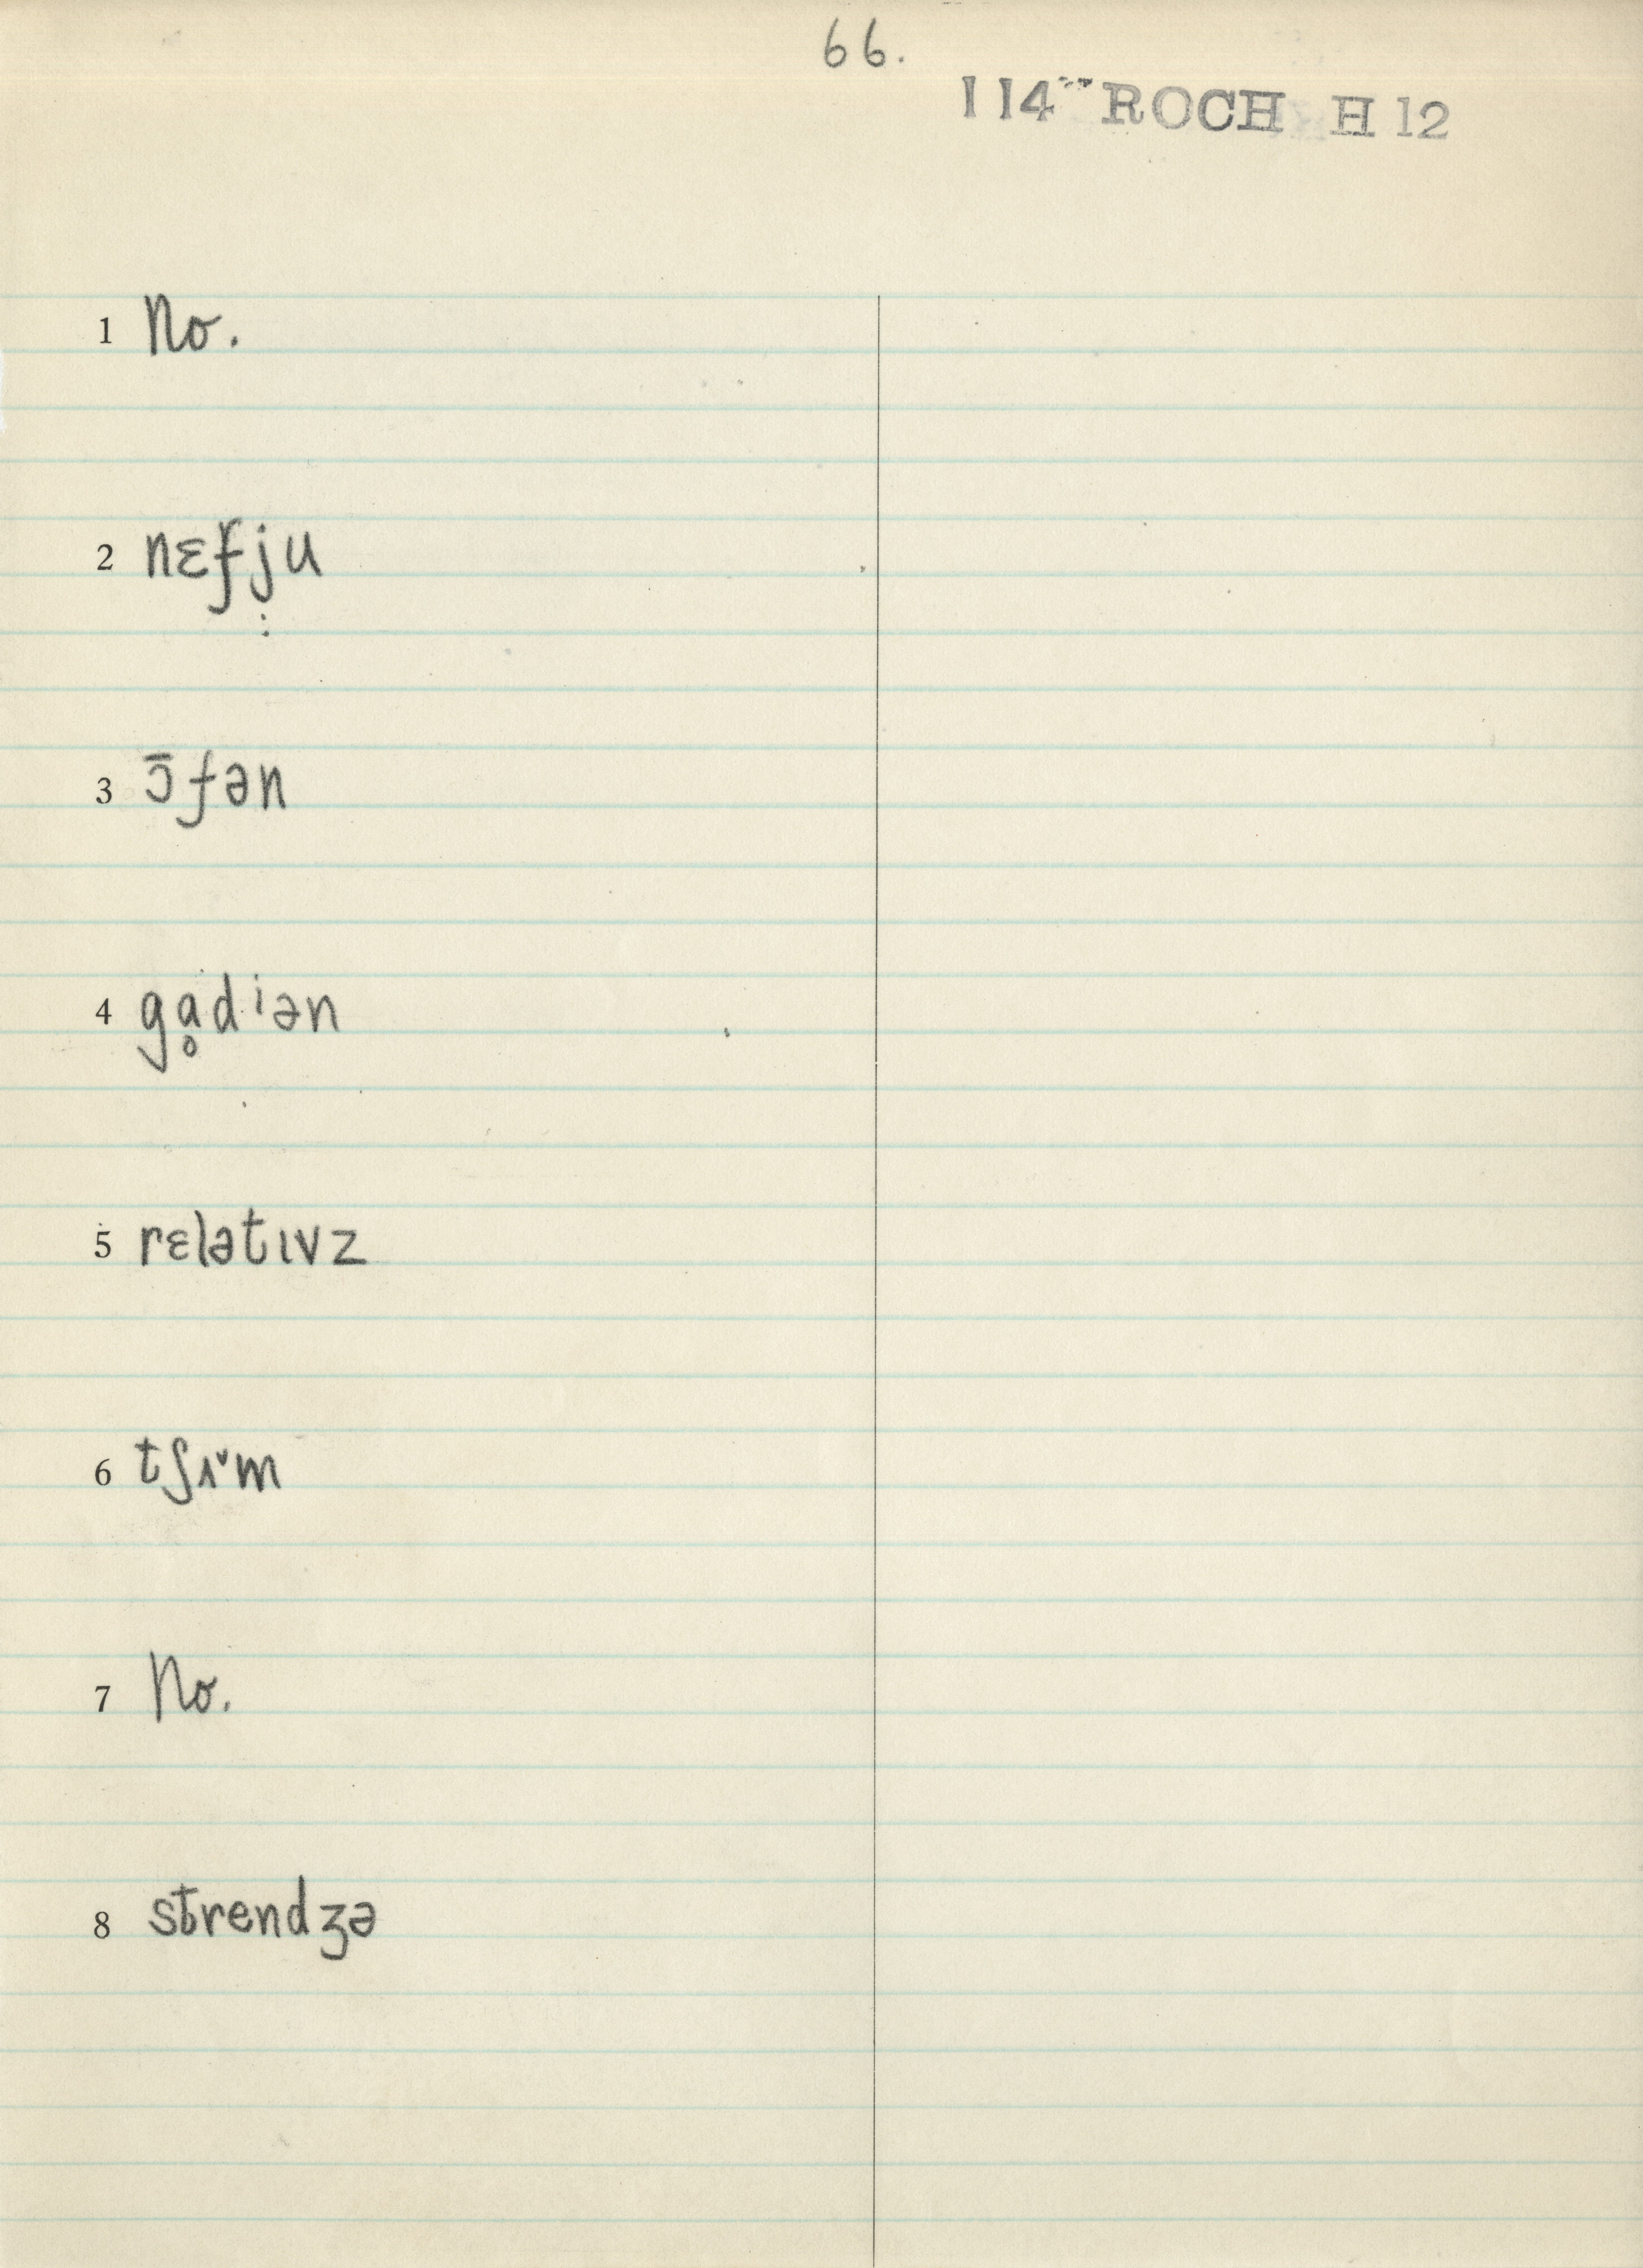 66.
114 ROCH H 12
1 No.
2 nɛfju
3 ɔ̄fən
4 gḁdiən
5 rɛlətɪvz
6 tʃɪ˅m
7 No.
8 strendʒə